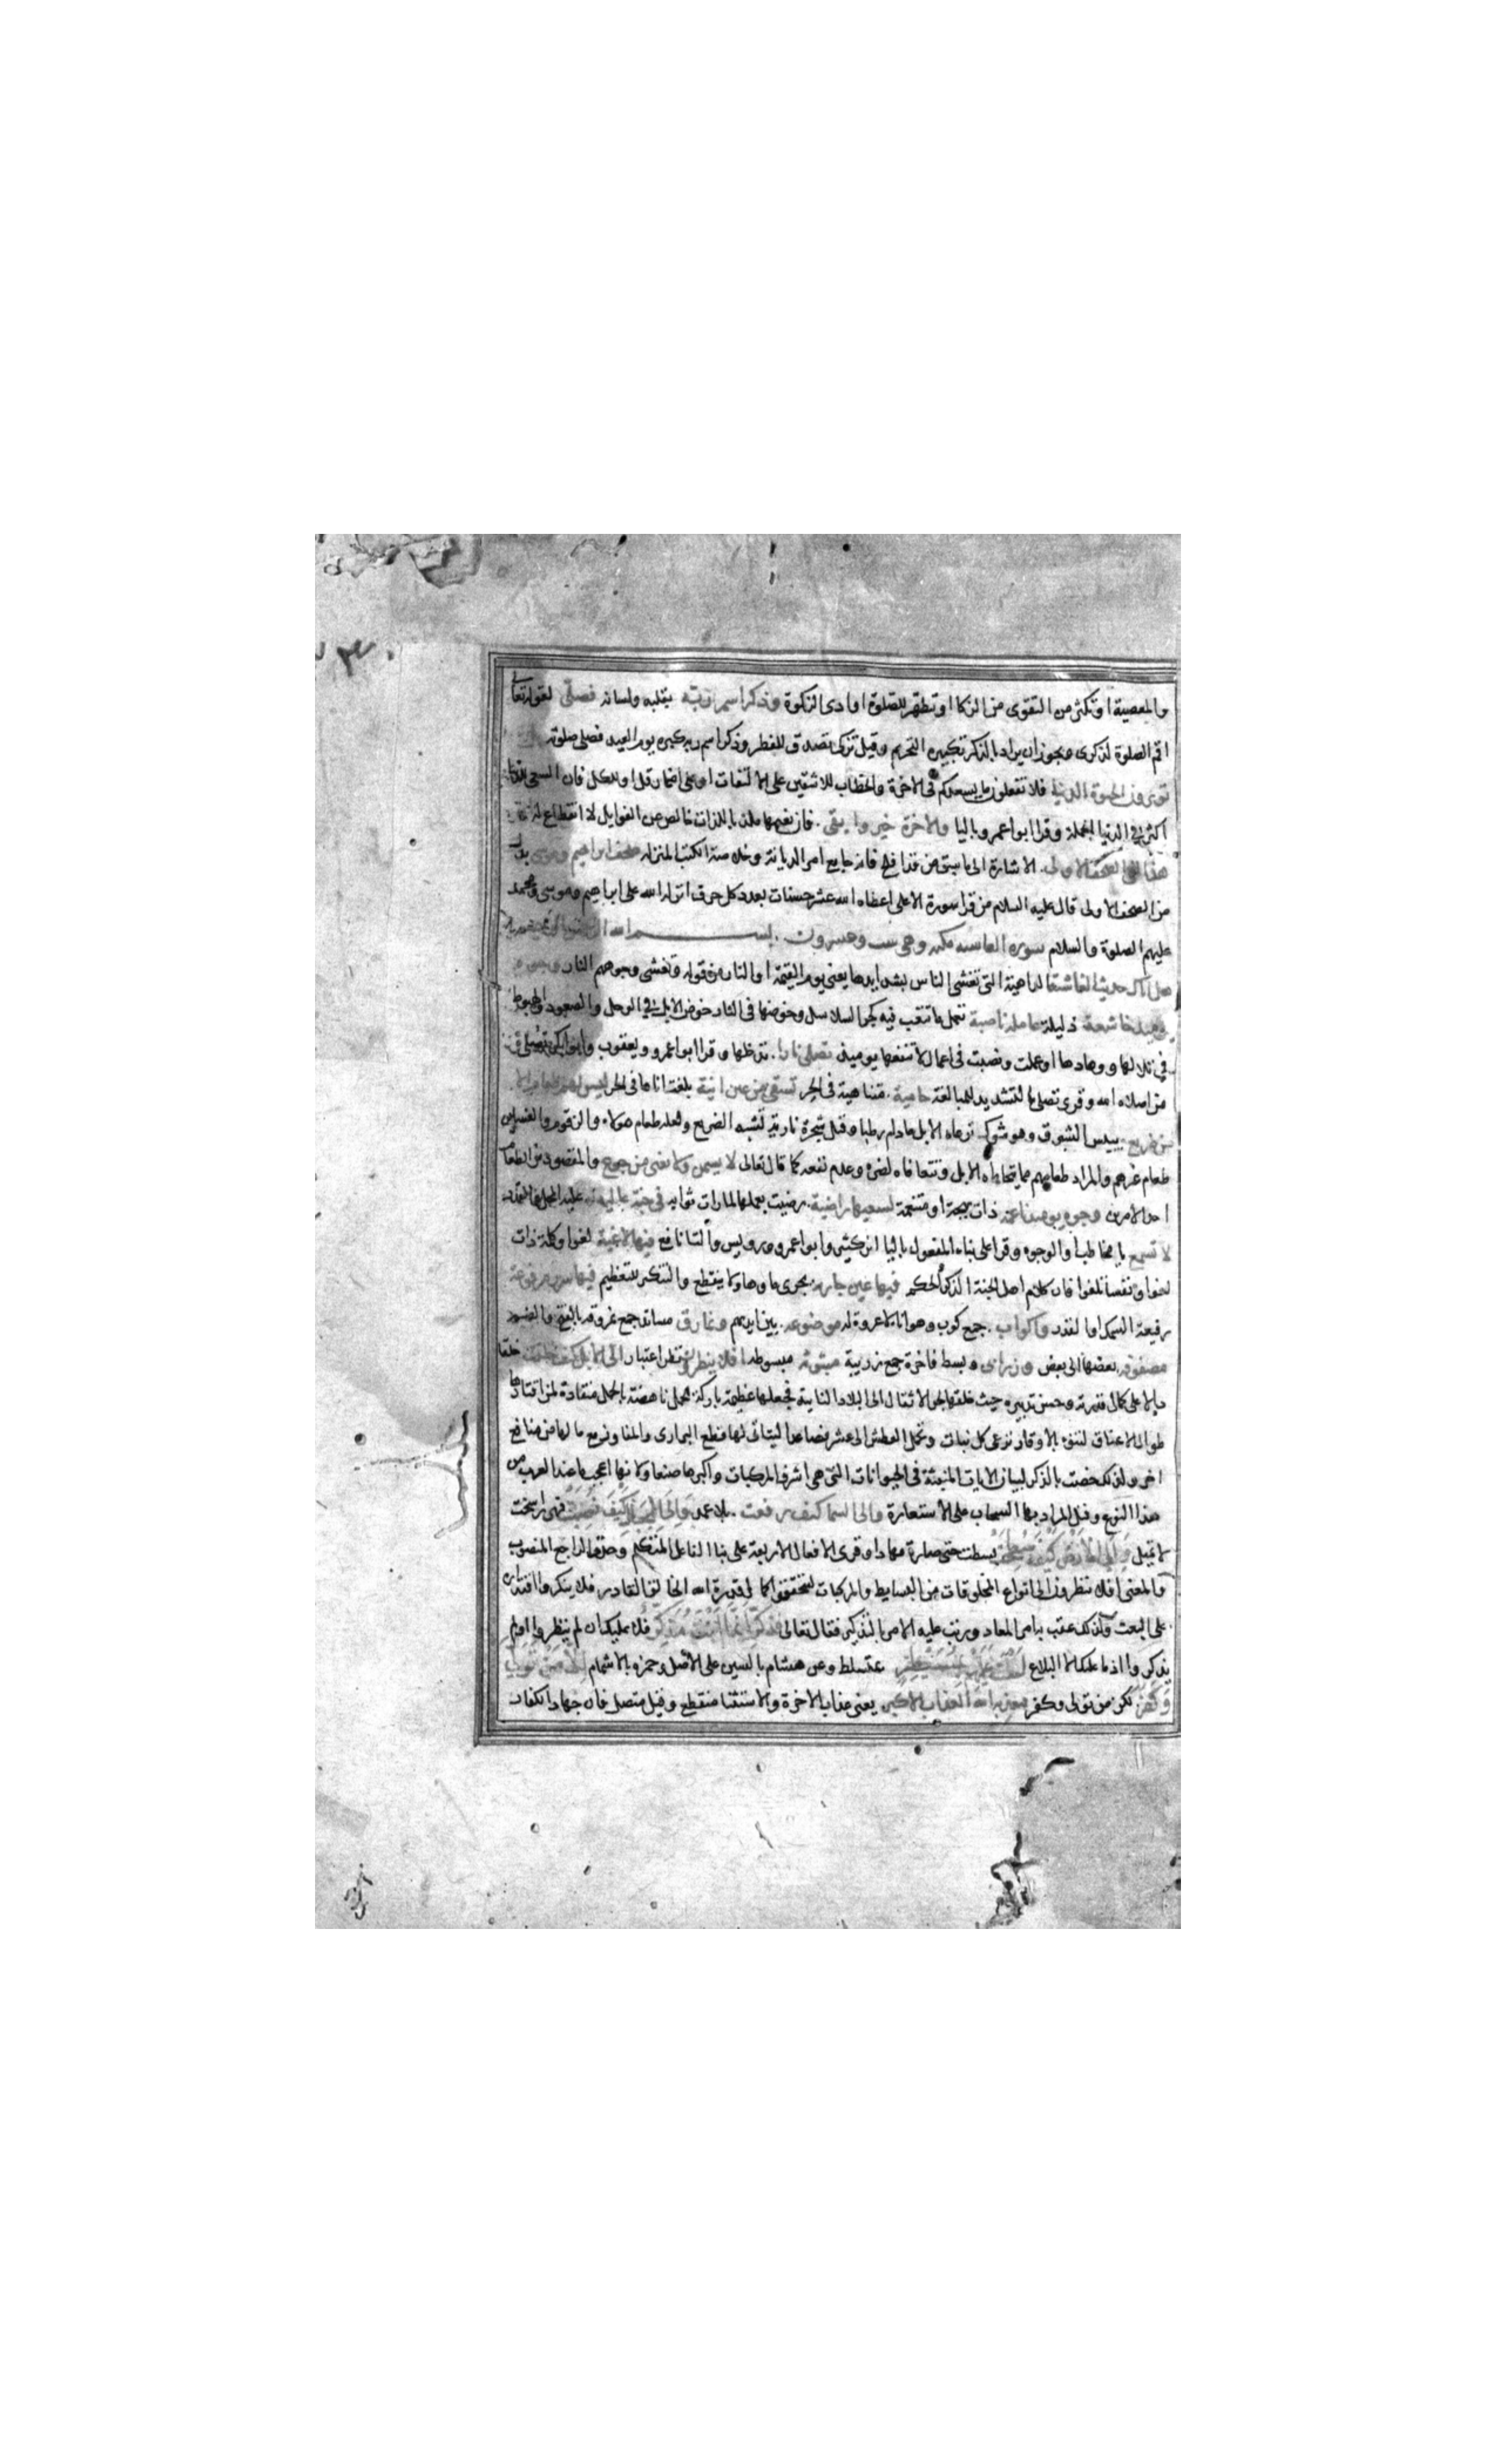 والمعصية او تكثر من التقوى من الزكا او تطهر للصلوة او ادى الزكوة وذكر اسم ربه بقلبه ولسانه فصلى لقوله تعالى
اقم الصلوة لذكرى ويجوز ان يراد بالذكر تكبيرة التحريم وقيل تزكى تصدق للفطر وذكر اسم ربه كبره يوم العيد فصلى صلوته
تؤثرون الحيوة الدنيا فلا تفعلون ما يسعدكم فى الاخرة والخطاب للاشقين على الالتفات او على اضمار قل او للكل فان السعى للدنيا
اكثر فى الدنيا الجملة وقرا ابو عمرو باليا والاخرة خير وابقى . فان نعيمها ملذ بالذات خالص من الغوايل لا انقطاع له
هذا لفى الصحف الاولى . الاشارة الى ما سبق من قد افلح فانه جامع امر الديانة وخلاصة الكتب المنزلة صحف ابراهيم وموسى بدل
من الصحف الاولى قال عليه السلام من قرا سورة الاعلى اعطاه الله عشر حسنات بعدد كل حرف انزله الله على ابراهيم وموسى ومحمد
عليهم الصلوة والسلام سورة الغاشية مكية وهى ست وعشرون . بسم الله
هل اتاك حديث الغاشية الداهية التى تغشى الناس بشدايدها يعنى يوم القيمة او النار من قوله وتغشى وجوههم النار وجوه
يومئذ خاشعة ذليلة عاملة ناصبة تعمل ما تتعب فيه كجر السلاسل وخوضها فى النار خوض الابل فى الوحل والصعود والهبوط
فى تلالها ووهادها او عملت ونصبت فى اعمال لا تنفعها يومئذ تصلى نارا . تدخلها وقرا ابو عمرو ويعقوب وابو بكر تصلى
من اصلاه الله وقرى تصلى بالتشديد للمبالغة حامية . متناهية فى الحر تسقى من عين انية بلغت اناها فى الحر ليس لهم طعام الا
من ضريع يبيس الشبرق وهو شوك ترعاه الابل مادام رطبا وقيل شجرة نارية تشبه الضريع ولعله طعام هولاء والزقوم والغسلين
طعام غيرهم والمراد طعامهم مما يتحاماه الابل وتتعافاه لضره وعدم نفعه كما قال تعالى لا يسمن ولا يغنى من جوع والمقصود من الطعام
احد الامرين وجوه يومئذ ناعمة ذات بهجة او متنعمة لسعيها راضية . رضيت بعملها لما رات ثوابه فى جنة عالية علية المحل او القدر
لا تسمع يا مخاطب او الوجوه وقرا على بناء المفعول باليا ابن كثير وابو عمرو ورويس وبالتا نافع فيها لاغية لغوا وكلمة ذات
لغوا ونفسا تلغوا فان كلام اهل الجنة الذكر والحكم فيها عين جارية يجرى ماوها ولا ينقطع والتنكير للتعظيم فيها سرر مرفوعة
رفيعة السمك او القدر واكواب . جمع كوب وهو انا لا عروة له موضوعة . بين ايديهم ونمارق مساند جمع نمرقة بالفتح والضم
مصفوفة بعضها الى بعض وزرابى وبسط فاخرة جمع زربية مبثوثة مبسوطة افلا ينظرون نظر اعتبار الى الابل كيف خلقت خلقا
دالا على كمال قدرته وحسن تدبيره حيث خلقها لجر الاثقال الى البلاد النايية فجعلها عظيمة باركة للحمل ناهضة بالحمل منقادة لمن اقتادها
طوال الاعناق لتنوء بالاوقار ترعى كل نبات وتحمل العطش الى عشر فصاعدا ليتاتى لها قطع البرارى والمفاوز مع ما لها من منافع
اخر ولذلك خصت بالذكر لبيان الايات المنبثة فى الحيوانات التى هى اشرف المركبات واكبرها صنعا ولانها اعجب ما عند العرب من
هذا النوع وقيل المراد بها السحاب على الاستعارة والى السما كيف رفعت . بلا عمد والى الجبال كيف نصبت فهى راسخة
لا تميل والى الارض كيف سطحت بسطت حتى صارة مهادا وقرى الافعال الاربعة على بنا الفاعل المتكلم وحذف الراجع المنصوب
والمعنى افلا ينظرون الى انواع المخلوقات من البسايط والمركبات ليتحققوا كمال قدرة الله الخالق القادر فلا ينكروا اقتداره
على البعث ولذلك عقب به امر المعاد ورتب عليه الامر بالتذكير فقال تعالى فذكر انما انت مذكر فلا عليك ان لم ينظروا او لم
يذكروا اذ ما عليك الا البلاغ لست عليهم بمسيطر بمتسلط وعن هشام بالسين على الاصل وحمزه بالاشمام الا من تولى
وكفر لكن من تولى وكفر فيعذبه الله العذاب الاكبر يعنى عذاب الاخرة والاستثنا منقطع وقيل متصل فان جهاد الكفار